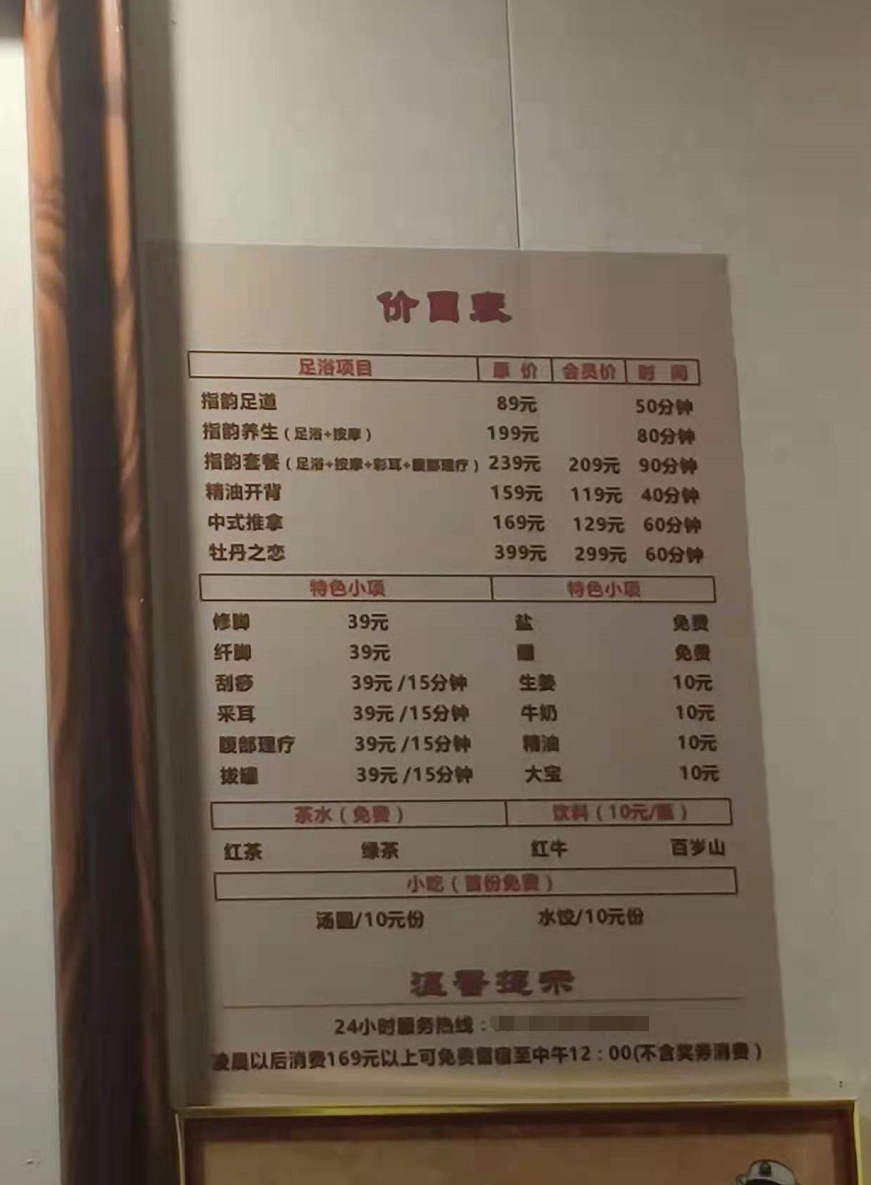 价目表
足浴项目 原价 会员价 时间
指韵足道 89元 50分钟
指韵养生(足浴+按摩) 199元 80分钟
指韵套餐(足浴+按摩+彩耳+腹部理疗) 239元 209元 90分钟
精油开背 159元 119元 40分钟
中式推拿 169元 129元 60分钟
牡丹之恋 399元 299元 60分钟
特色小项 特色小项
修脚 39元 盐 免费
纤脚 39元 免费
刮痧 39元/15分钟 生姜 10元
采耳 39元/15分钟 牛奶 10元
腹部理疗 39元/15分钟 精油 10元
拔罐 39元/15分钟 大宝 10元
茶水(免费) 饮料(10元/瓶)
红茶 绿茶 红牛 百岁山
小吃(首份免费)
汤圆/10元份 水饺/10元份
温馨提示
24小时服务热线:
凌晨以后消费169元以上可免费留宿至中午12:00(不含奖券消费)